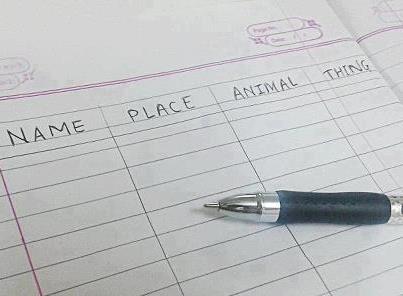 Page No.
Date:
NAME PLACE ANIMAL THING